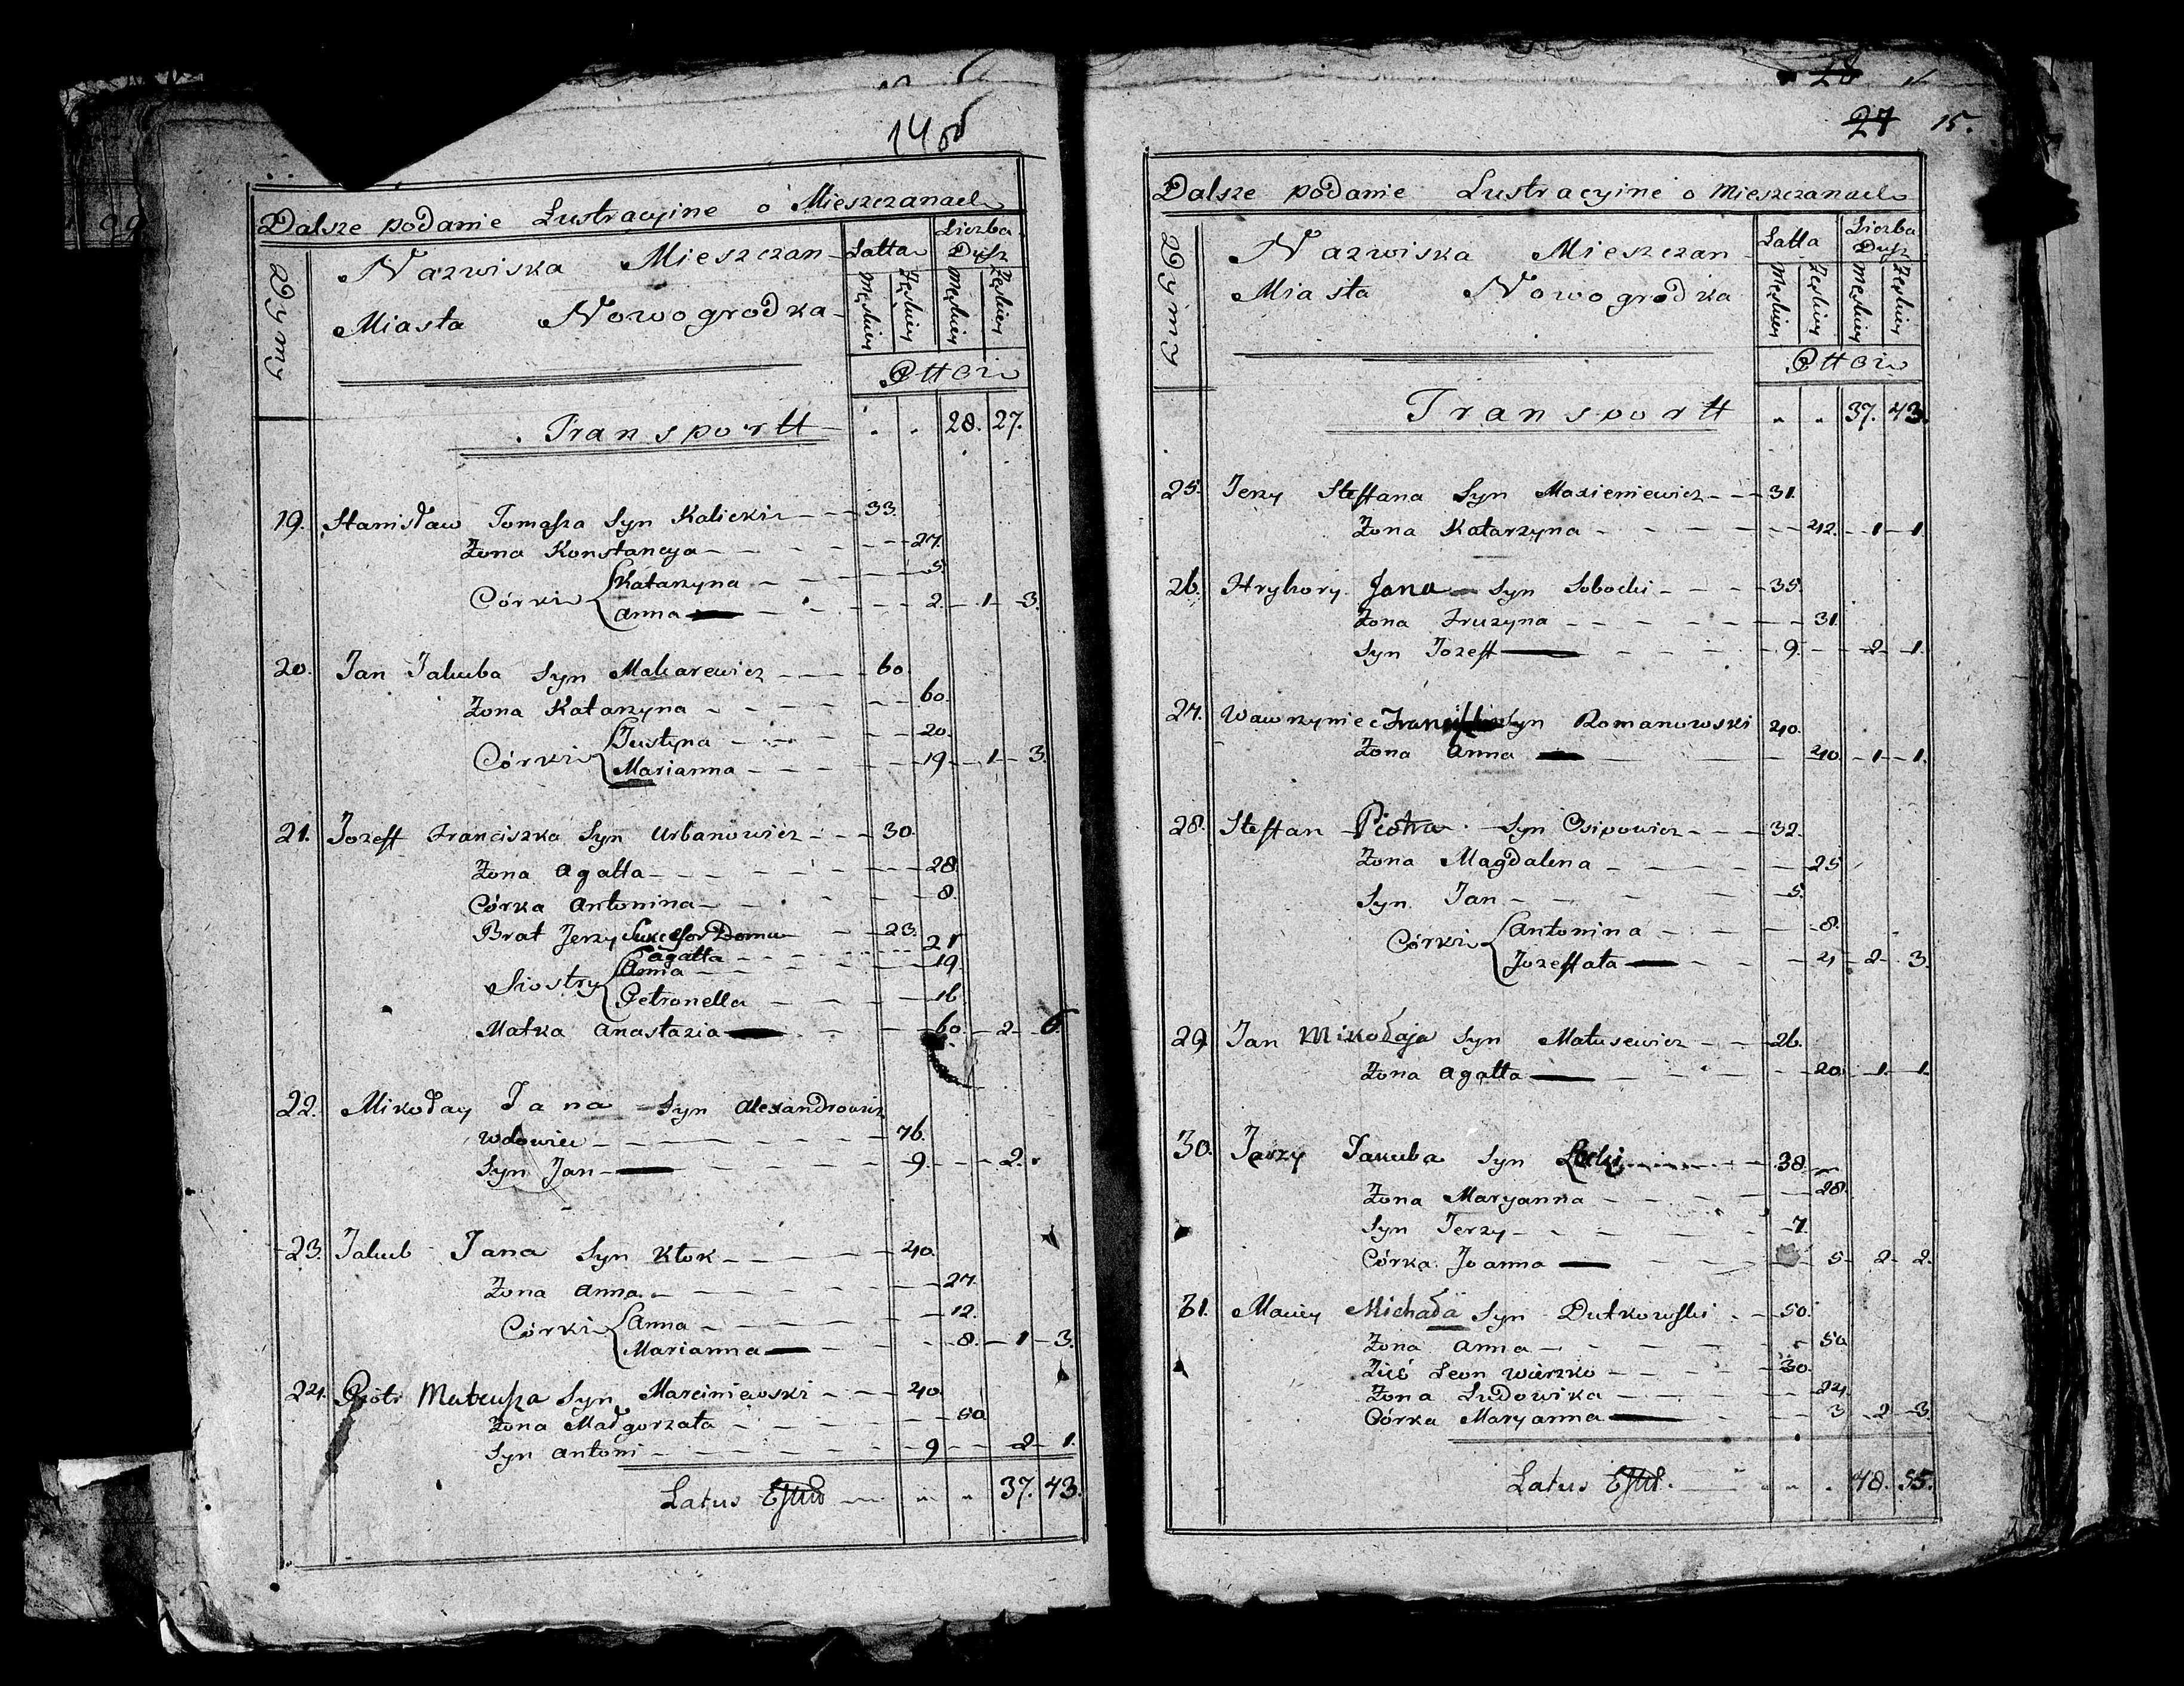 14об
Dalsze podanie Lustracyine o Mieszczanach
Dymy
Nazwiska Mieszczan
Miasta Nowogrodka
Latta
Liczba Dusz
Męskiey
Żęskiey
Męskiey
Żęskiey
Transportt . . 28. 27.
19. Stanisław Tomasza Syn Kalicki 33.
Żona Konstancya 27.
Córki Katarzyna 5.
Anna 2. 1 3.
20. Jan Jakuba Syn Makarewicz 60.
Żona Katarzyna 60.
Córki Justyna 20.
Marianna 19 1 3.
21. Jozeff Franciszka Syn Urbanowicz 30.
Żona Agatta 28
Córka Antonina 8.
Brat Jerzy Sukcessor Domu 23.
Agatta 21
Siostry Anna 19
Petronella 16
Matka Anastazia 60. 2 6.
22. Mikołay Jana Syn Alexandrowicz
Wdowiec 76.
Syn Jan 9 2.
23. Jakub Jana Syn Kłok 40.
Żona Anna 27.
Córki Anna 12.
Marianna 8. 1 3.
24. Piotr Mateusza Syn Marciniewski 40.
Żona Małgorzata 50
Syn Antoni 9 2 1.
Latus 37. 43.
28
27 15.
Dalsze podanie Lustracyine o Mieszczanach
Dymy
Nazwiska Mieszczan
Miasta Nowogrodka
Latta
Liczba Dusz
Męskiey
Żęskiey
Męskiey
Żęskiey
Transportt . . 37. 43.
25. Jerzy Steffana Syn Maxieniewicz 31.
Żona Katarzyna 42. 1 1.
26. Hryhory Jana Syn Sobocki 35.
Żona Fruzyna 31.
Syn Jozeff 9. 2 1.
27. Wawrzyniec Syn Romanowski 40.
Żona Anna 40 1 1.
28. Steffan Piotra Syn Osipowicz 32.
Żona Magdalena 25
Syn Jan 5.
Córki Antonina 8.
Jozeffata 4 2 3.
29. Jan Mikołaja Syn Matusewicz 26.
Żona Agatta 20 1 1.
30. Jerzy Jakuba Syn 38.
Żona Maryanna 28.
Syn Jerzy 7.
Córka Joanna 5 2 2.
31. Maciey Michała Syn Dutkowski 50.
Żona Anna 50
Zięć Leon Wierzko 30.
Żona Ludowika 24.
Córka Maryanna 3 2 3.
Latus . 48. 55.